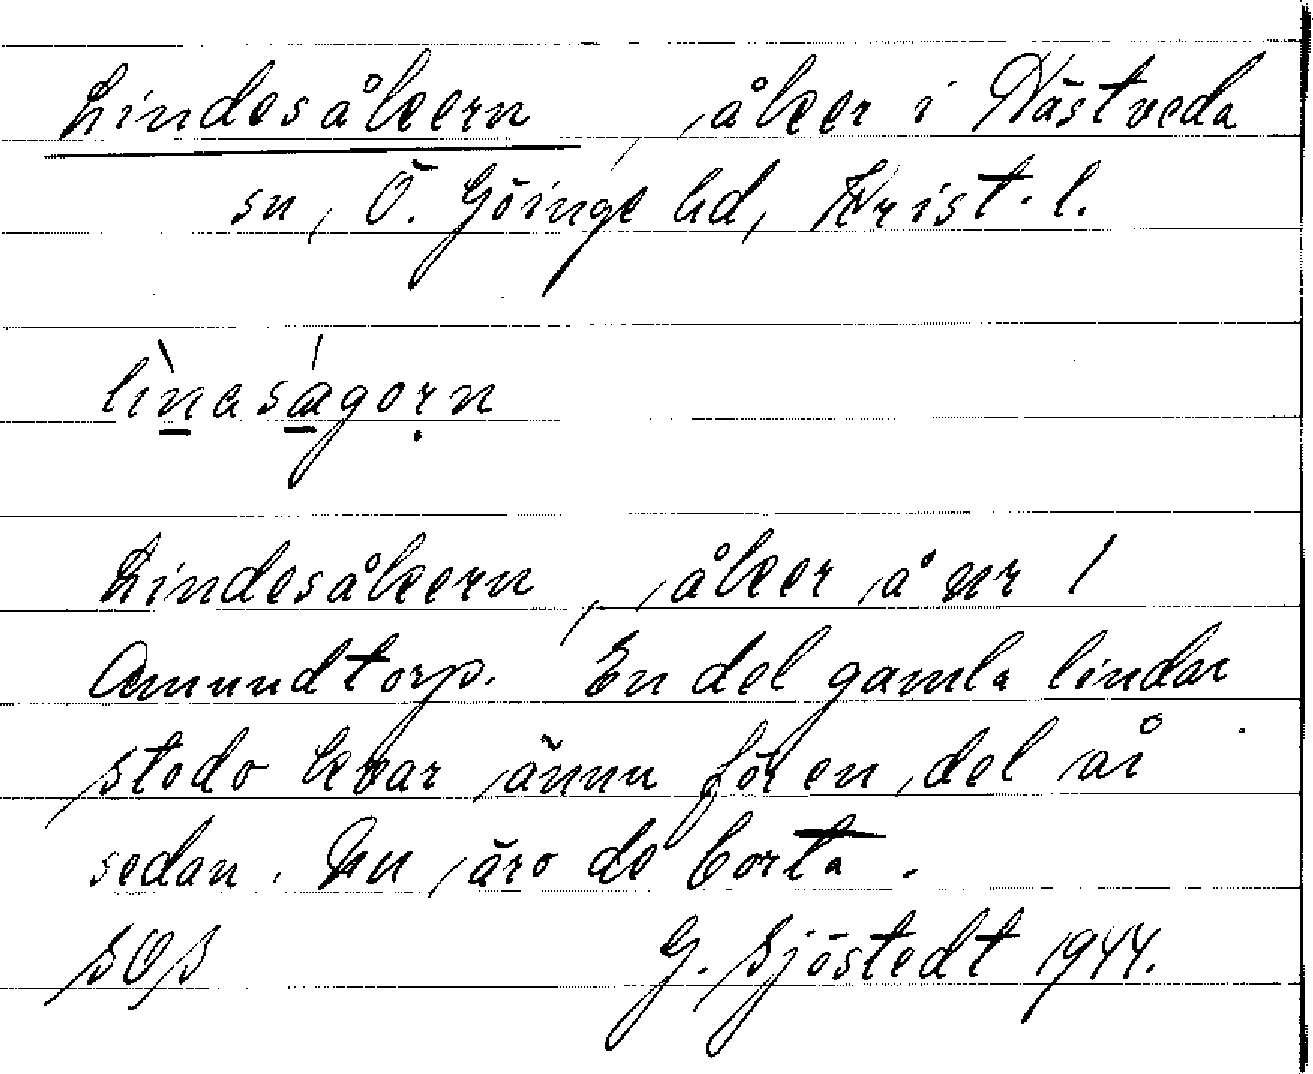 Lindesåkern, åker i Nästveda
sn, Ö. Göinge hd, Krist. l.
lìnaságorn
Lindesåkern, åker å nr 1
Amundtorp. En del gamla lindar
stodo kvar ännu för en del år
sedan. Nu äro de borta.
SOS G. Sjöstedt 1944.